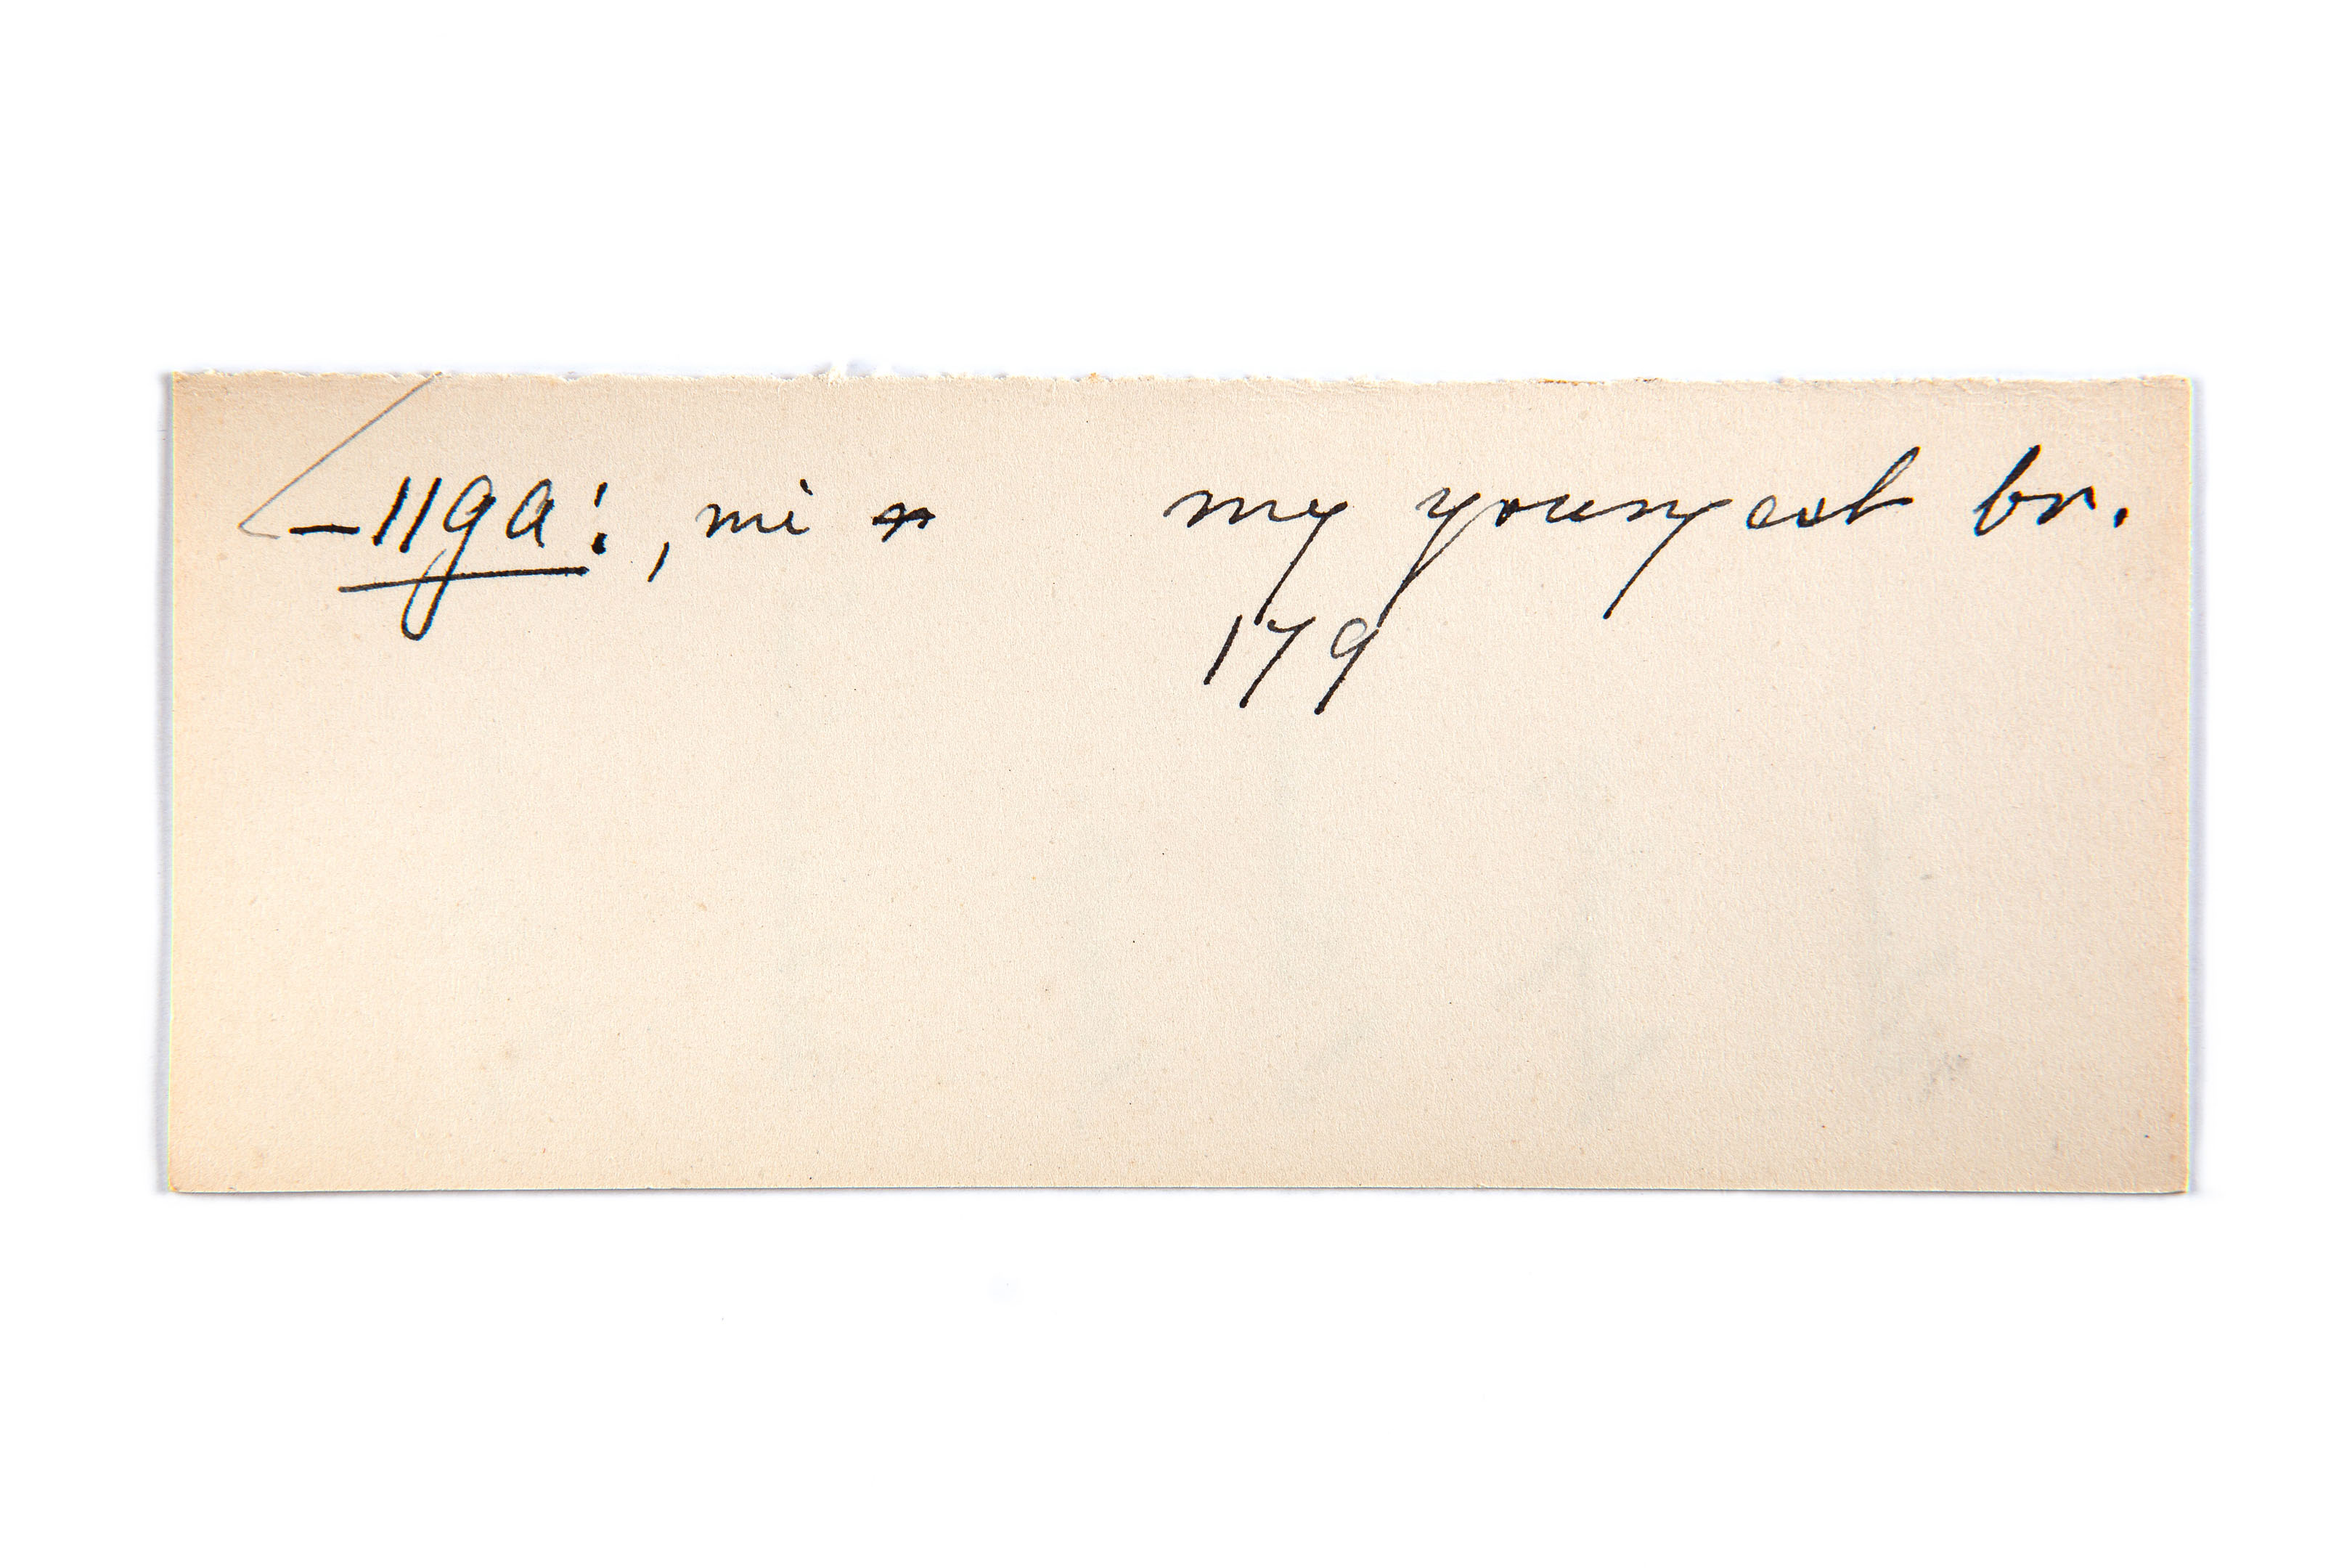 –ǁga:, mi my youngest br.
179